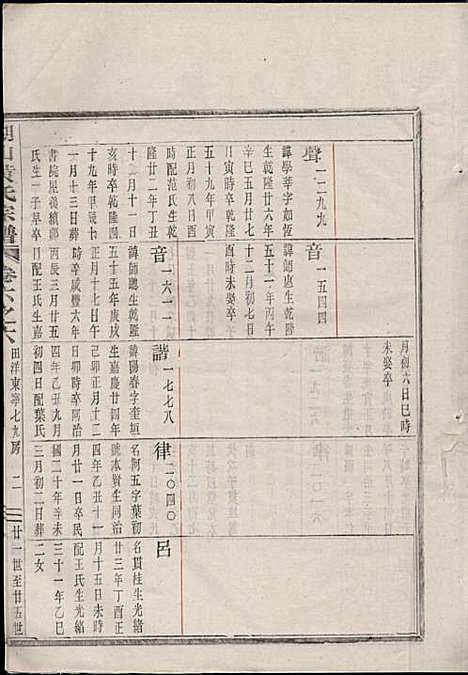 聲 一二九九
諱學華字如恆
生乾隆廿六年
辛巳五月廿七
日寅時卒乾隆
五十九年甲寅
正月初八日酉
時配范氏生乾
隆廿二年丁丑
十二月十一日
亥時卒乾隆四
十九年甲辰
一月十三日葬
書院屋後續娶
氏生一子早卒
音 一五四四
諱師惠生乾隆
五十一年丙午
十二月初七日
酉時未娶卒
音 一六一一
諱師聰生乾隆
五十五年庚戌
正月十七日
時卒咸豐六年
丙辰三月廿五
日配王氏生嘉
月初六日巳時
未娶卒
諧 一七七八
諱陽春字奎垣
生嘉慶廿四年
己卯正月十二
日卯時卒同治
四年乙丑九月
初四日配葉氏
律 二〇四〇
名阿五字葉初
號本賢生同治
四年乙丑十一
月廿一日卒民
國二十年辛未
三月初二日葬
呂
名貫陸生光緒
廿三年丁酉正
月十五日未時
配王氏生光緒
三十一年乙巳
二女
氏宗譜 卷之六
田洋東寧七九房 二
廿一世至廿五世